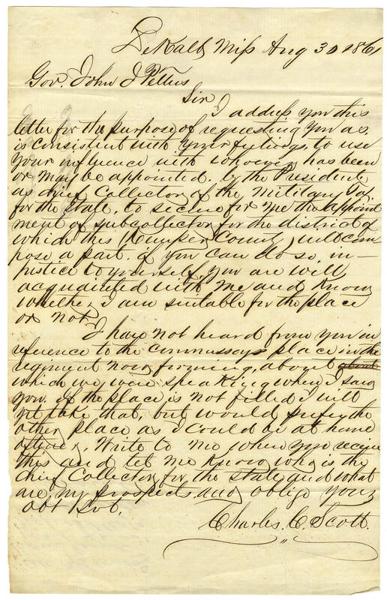 DeKalb Miss Aug 30 1861
Gov. John J Pettus
Sir
I address you this
letter for the purpose of requesting you as
is consistent with your feelings, to use
your influence with whoever has been
or may be appointed, by the President
as chief Collector of the Military Tax
for the State, to secure for me the appoint
ment of subcollector for the district of
which this Kemper County, will com
pose a part. if you can do so, in
justice to yourself, you are well
acquainted with me and know
whether I am suitable for the place
or not.
I have not heard from you in
reference to the commissary's place in the
regiment now forming, about
which we were speaking when I saw
you. If the place is not filled I will
yet take that, but would prefer the
other place as I could be at home
Write to me when you receive
this and let me know who is the
chief Collector for the State and what
are my prospects and oblige your
obt svt.
Charles C. Scott